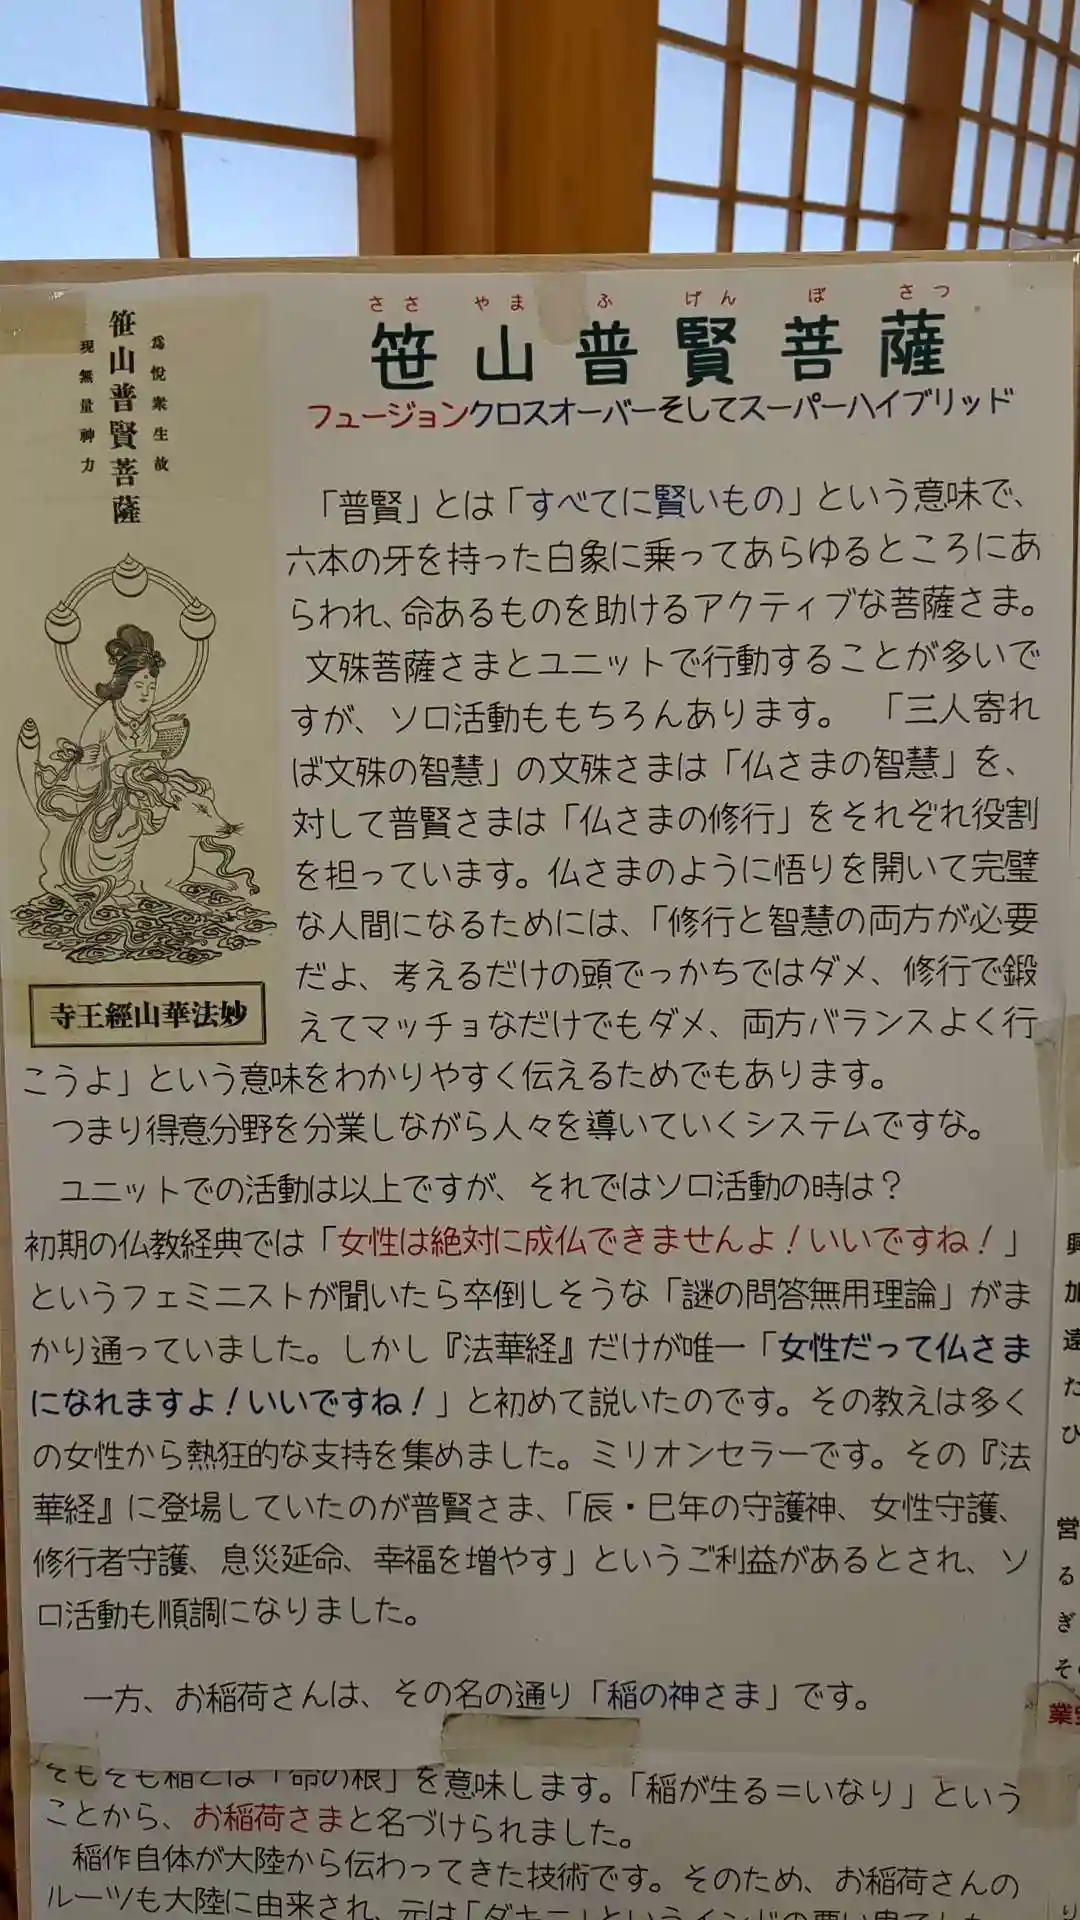 笹山普賢菩薩
為悦衆生故
現無量神力
寺王經山華法妙
ささ やま ふ げん ぼ さつ
笹山普賢菩薩
フュージョンクロスオーバーそしてスーパーハイブリッド
「普賢」とは「すべてに賢いもの」という意味で、
六本の牙を持った白象に乗ってあらゆるところにあ
らわれ、命あるものを助けるアクティブな菩薩さま。
文殊菩薩さまとユニットで行動することが多いで
すが、ソロ活動ももちろんあります。 「三人寄れ
ば文殊の智慧」の文殊さまは「仏さまの智慧」を、
対して普賢さまは「仏さまの修行」をそれぞれ役割
を担っています。仏さまのように悟りを開いて完璧
な人間になるためには、「修行と智慧の両方が必要
だよ、考えるだけの頭でっかちではダメ、修行で鍛
えてマッチョなだけでもダメ、両方バランスよく行
こうよ」という意味をわかりやすく伝えるためでもあります。
つまり得意分野を分業しながら人々を導いていくシステムですな。
ユニットでの活動は以上ですが、それではソロ活動の時は？
初期の仏教経典では「女性は絶対に成仏できませんよ！いいですね！」
というフェミニストが聞いたら卒倒しそうな「謎の問答無用理論」がま
かり通っていました。しかし『法華経』だけが唯一「女性だって仏さま
になれますよ！いいですね！」と初めて説いたのです。その教えは多く
の女性から熱狂的な支持を集めました。ミリオンセラーです。その『法
華経』に登場していたのが普賢さま、「辰・巳年の守護神、女性守護、
修行者守護、息災延命、幸福を増やす」というご利益があるとされ、ソ
ロ活動も順調になりました。
一方、お稲荷さんは、その名の通り「稲の神さま」です。
そもそも稲とは「命の根」を意味します。「稲が生る＝いなり」という
ことから、お稲荷さまと名づけられました。
稲作自体が大陸から伝わってきた技術です。そのため、お稲荷さんの
ルーツも大陸に由来され、元は「ダキニ」というインドの悪い鬼でした